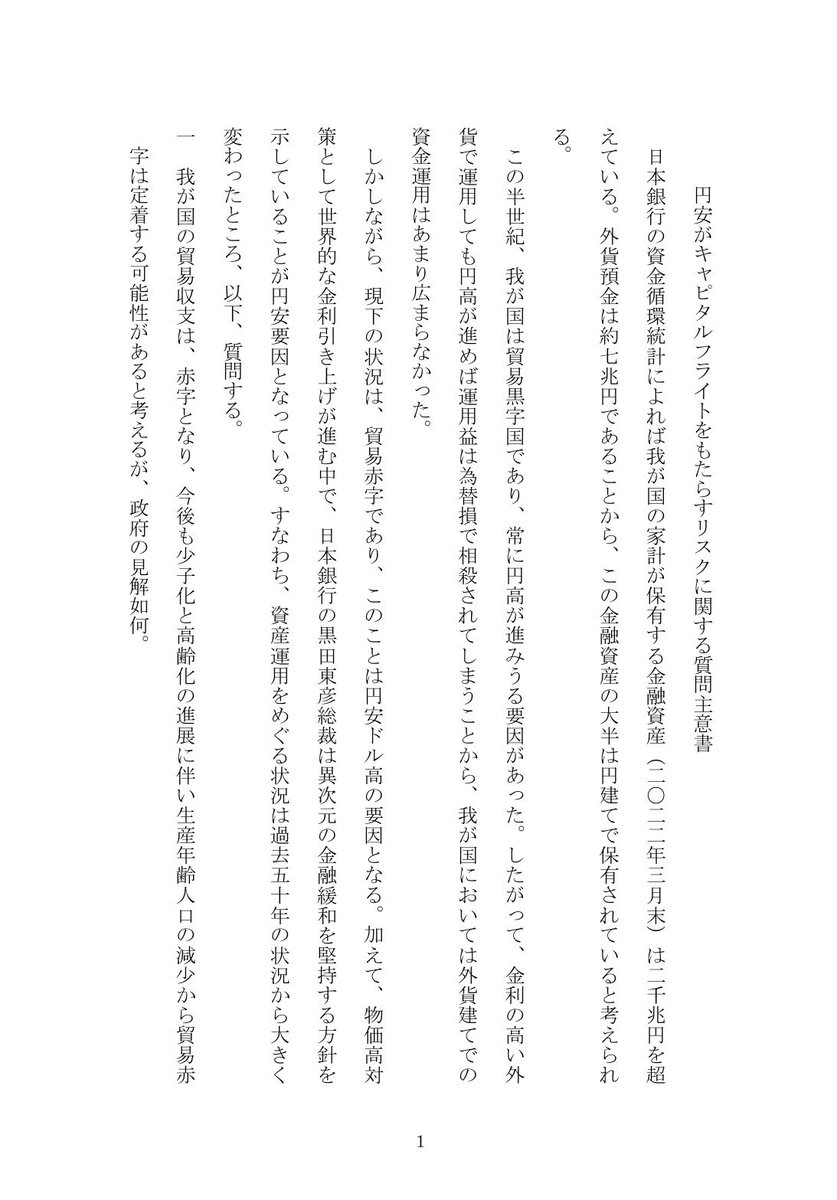 円安がキャピタルフライトをもたらすリスクに関する質問主意書
日本銀行の資金循環統計によれば我が国の家計が保有する金融資産（二〇二二年三月末）は二千兆円を超
えている。外貨預金は約七兆円であることから、この金融資産の大半は円建てで保有されていると考えられ
る。
この半世紀、我が国は貿易黒字国であり、常に円高が進みうる要因があった。したがって、金利の高い外
貨で運用しても円高が進めば運用益は為替損で相殺されてしまうことから、我が国においては外貨建てでの
資金運用はあまり広まらなかった。
しかしながら、現下の状況は、貿易赤字であり、このことは円安ドル高の要因となる。加えて、物価高対
策として世界的な金利引き上げが進む中で、日本銀行の黒田東彦総裁は異次元の金融緩和を堅持する方針を
示していることが円安要因となっている。すなわち、資産運用をめぐる状況は過去五十年の状況から大きく
変わったところ、以下、質問する。
一　我が国の貿易収支は、赤字となり、今後も少子化と高齢化の進展に伴い生産年齢人口の減少から貿易赤
字は定着する可能性があると考えるが、政府の見解如何。
1